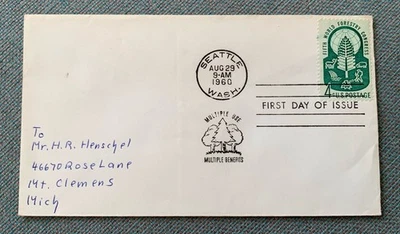 SEATTLE
AUG 29
9-AM
1960
WASH.
FIFTH WORLD FORESTRY CONGRESS
4¢ U.S. POSTAGE
FIRST DAY OF ISSUE
MULTIPLE USE
MULTIPLE BENEFITS
To
Mr. H.R. Henschel
46670 Rose Lane
Mt. Clemens
Mich